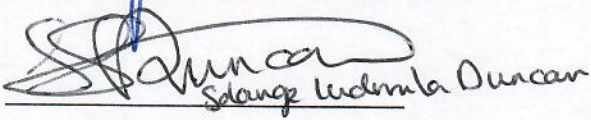 Duncan
Solange Ludmila Duncan